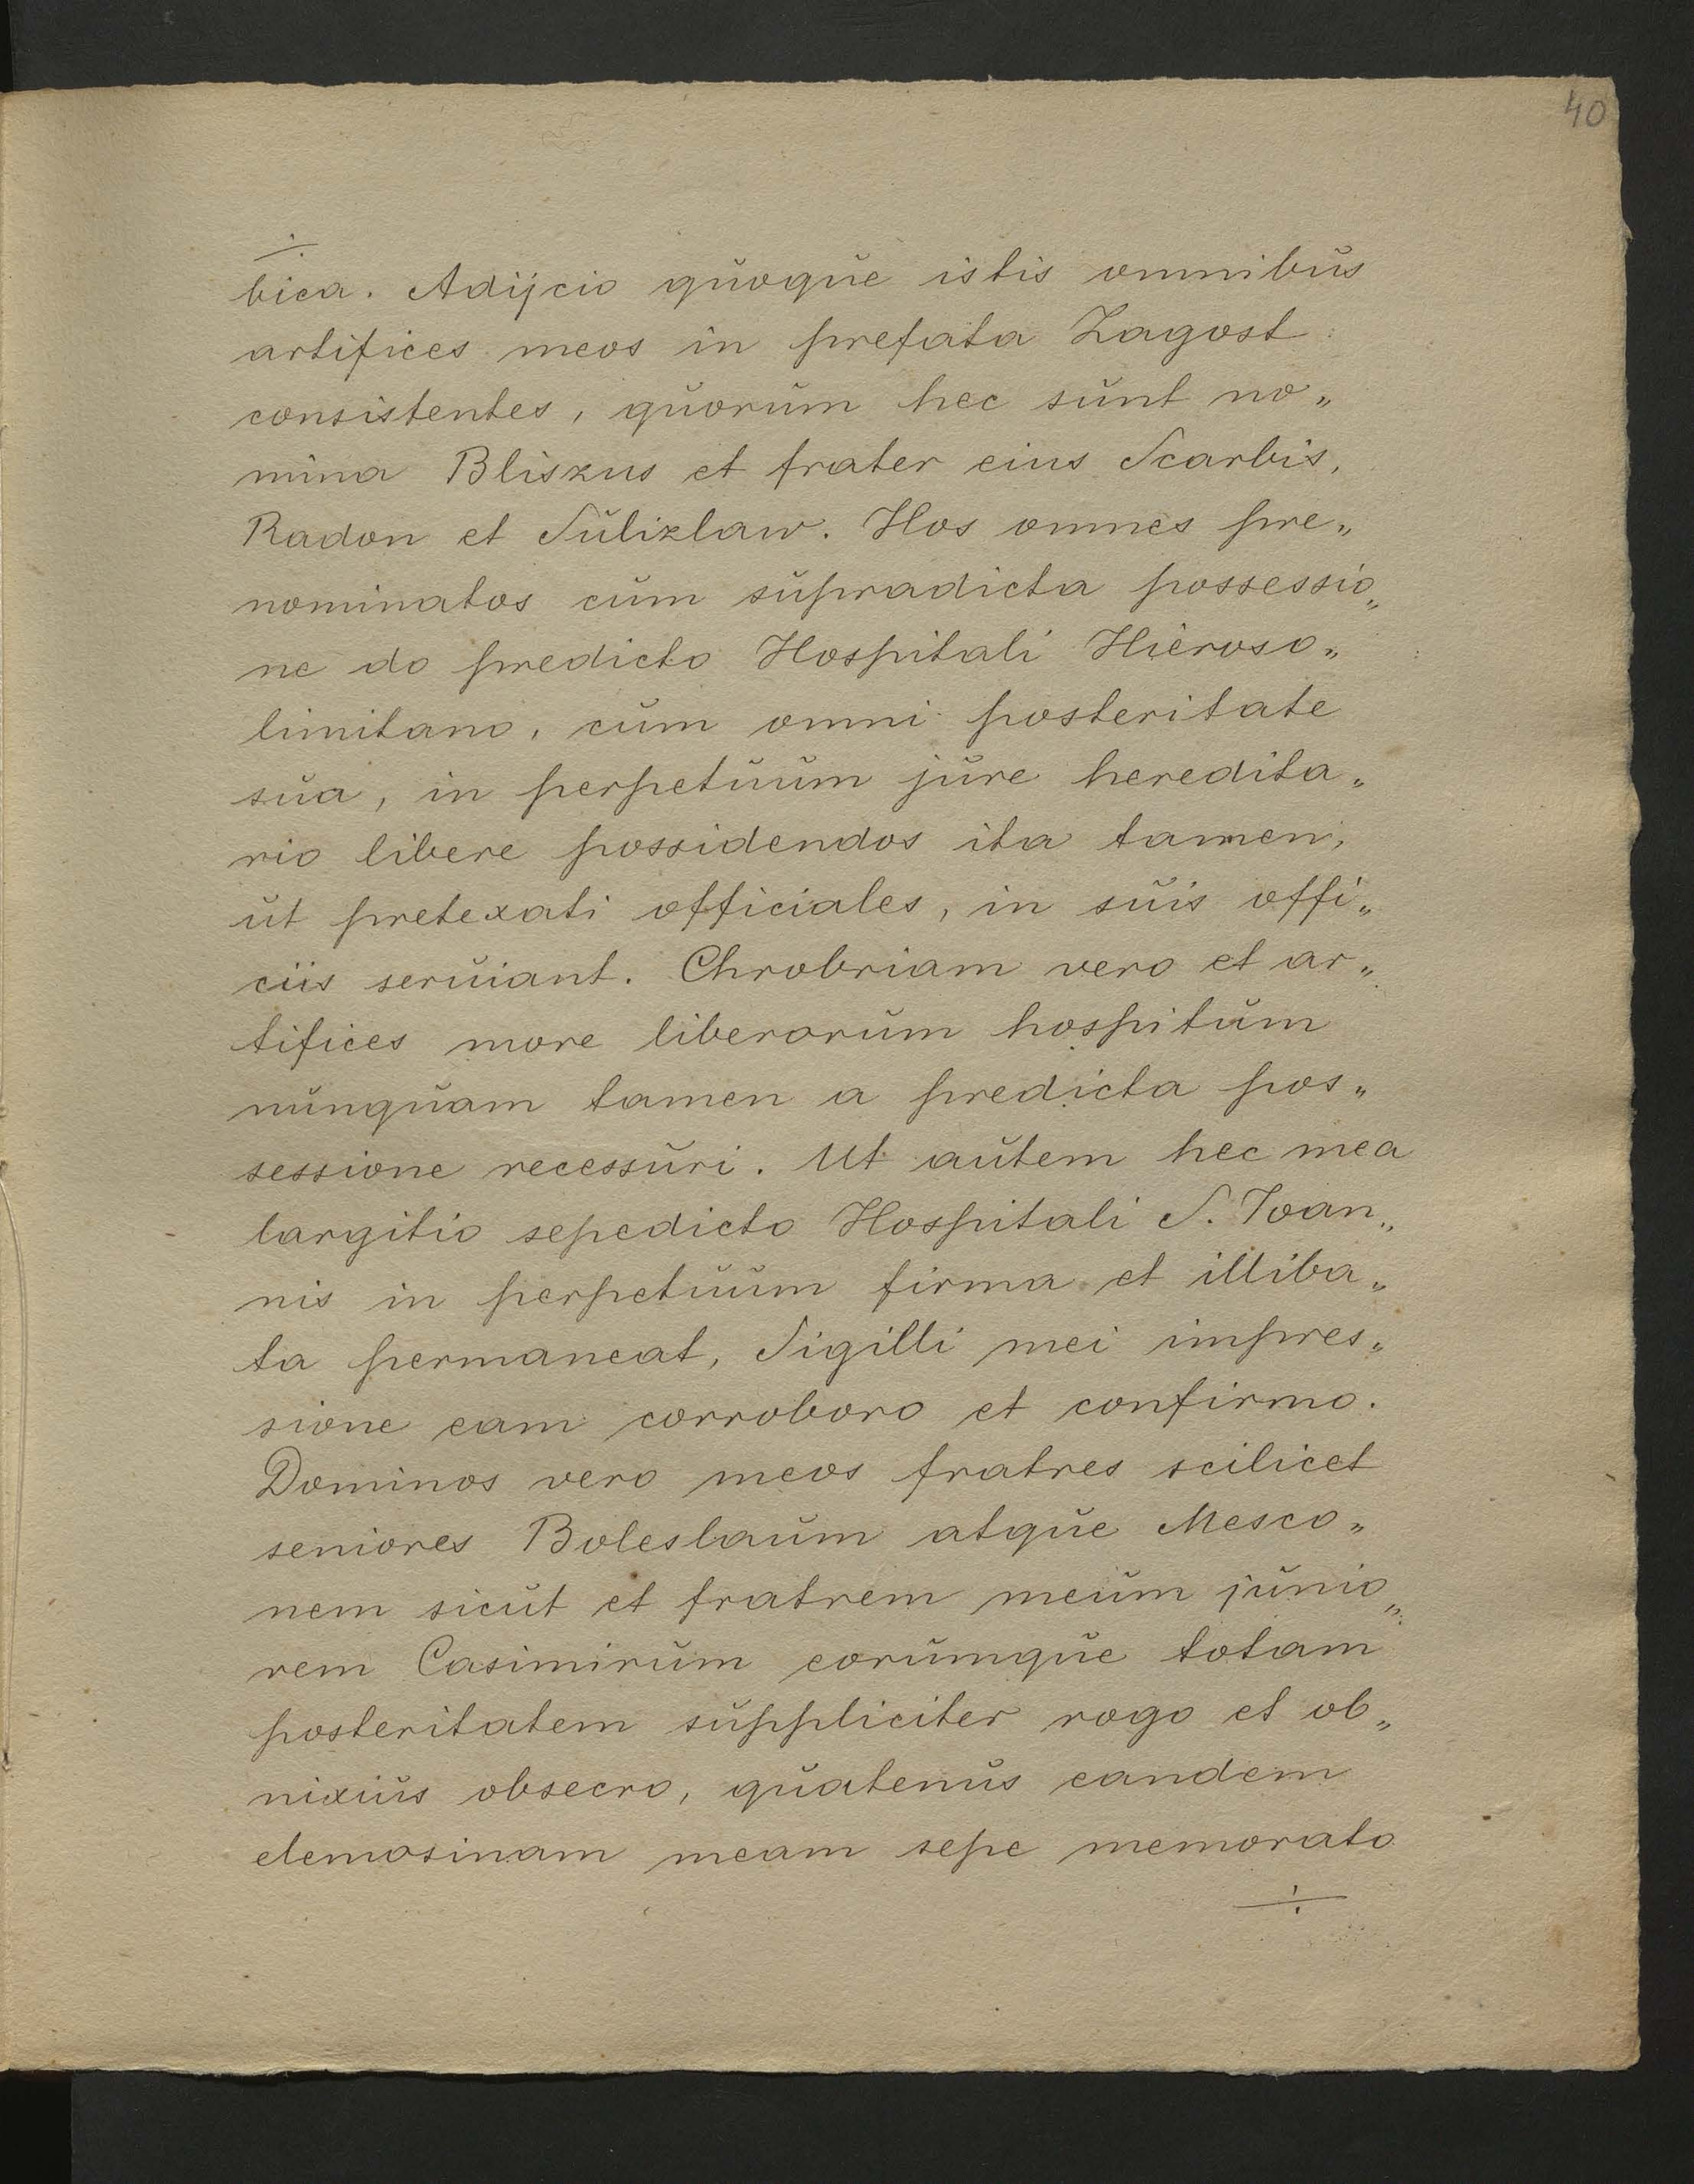 40
÷
bica. Adijcio quoque istis omnibus
artifices meos in prefata Zagost
consistentes, quorum hec sunt no„
mina Bliszus et frater eius Scarbis,
Radon et Sulizlaw. Hos omnes pre„
nominatos cum supradicta possessio„
ne do predicto Hospitali Hieroso„
limitano, cum omni posteritate
sua, in perpetuum jure heredita„
rio libere possidendos ita tamen,
ut pretexati officiales, in suis offi„
ciis seruiant. Chrobriam vero et ar„
tifices more liberorum hospitum
nunquam tamen a predicta pos„
sessione recessuri. Ut autem hec mea
largitio sepedicto Hospitali S. Ioan„
nis in perpetuum firma et illiba„
ta permaneat, Sigilli mei impres„
sione eam corroboro et confirmo.
Dominos vero meos fratres scilicet
seniores Boleslaum atque Mesco„
nem sicut et fratrem meum junio„
rem Casimirum eorumque totam
posteritatem suppliciter rogo et ob„
nixius obsecro, quatenus eandem
elemosinam meam sepe memorato
÷